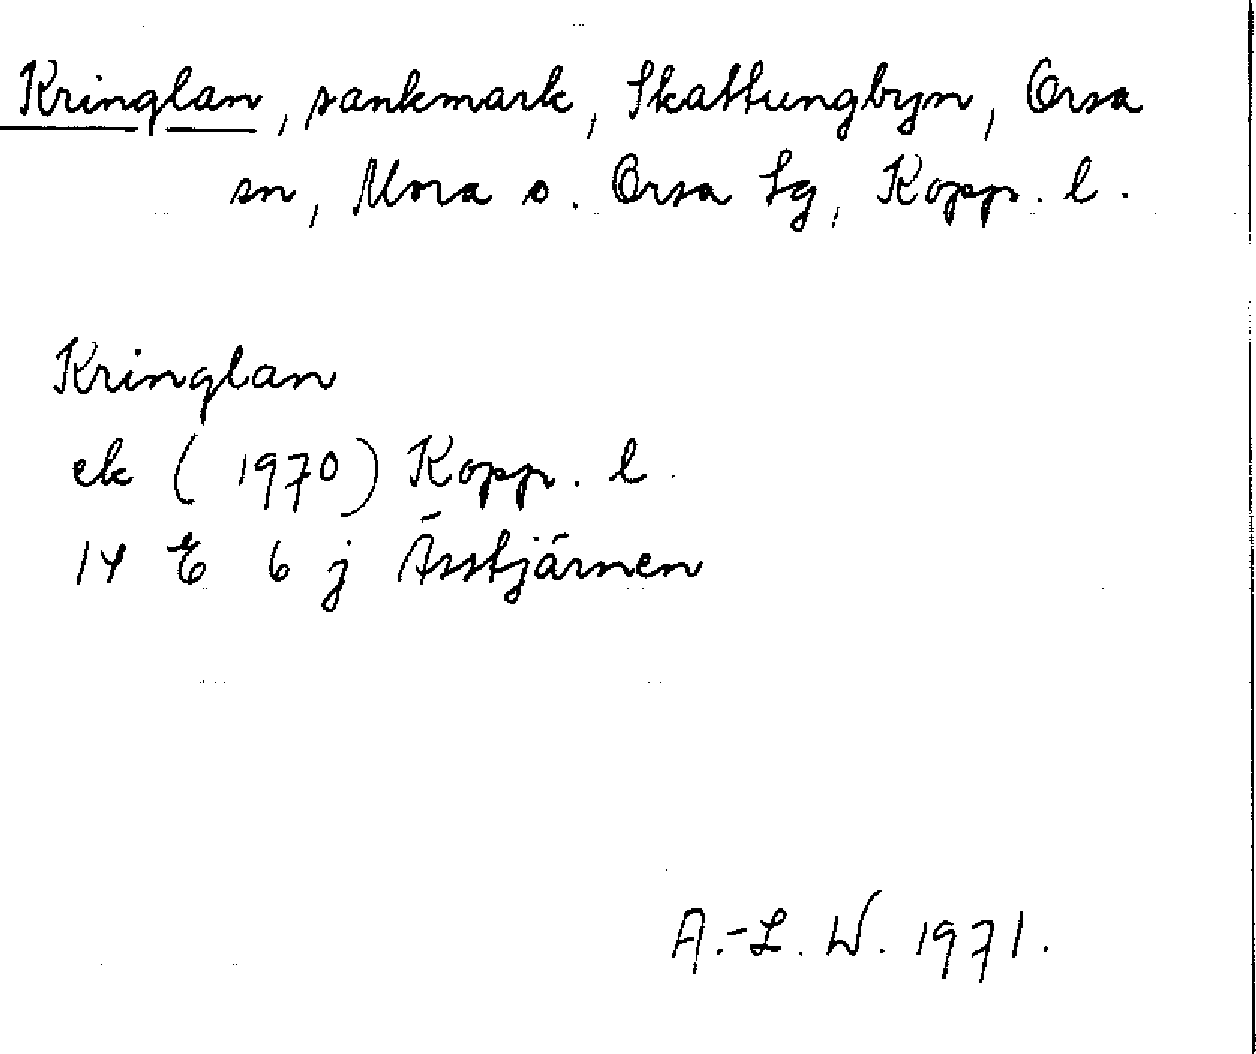 Kringlan, sankmark, Skattungbyn, Orsa
sn, Mora o. Orsa tg, Kopp. l.
Kringlan
ek (1970) Kopp. l.
14 E 6 j Ässtjärnen
A.-L. W. 1971.